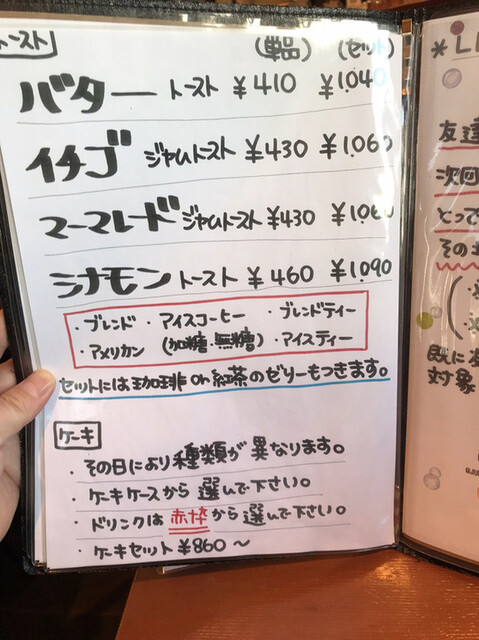 トースト
(単品) (セット)
バター トースト ¥410 ¥1,040
イチゴ ジャムトースト ¥430 ¥1,060
マーマレード ジャムトースト ¥430 ¥1,060
シナモン トースト ¥460 ¥1,090
・ブレンド ・アイスコーヒー ・ブレンドティー
・アメリカン (加糖・無糖) ・アイスティー
セットには珈琲or紅茶のゼリーもつきます。
ケーキ
・その日により種類が異なります。
・ケーキケースから選んで下さい。
・ドリンクは赤枠から選んで下さい。
・ケーキセット ¥860〜
友達
次回
とって
既に
対象